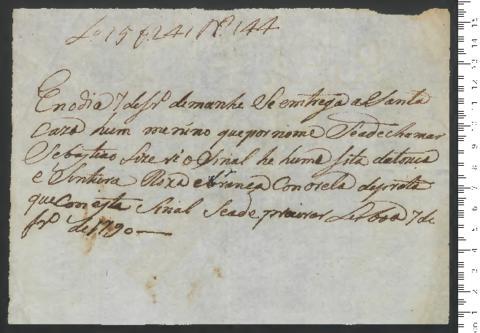 Lº 15 f 241 Nº 144
Em o dia 7 de frº de manhe Se emtrega a Santa
Caza hum menino que por nome Seade chamar
Sebastiao o Sinal he huma fita
e Sintura Roxa e branca Con orela de prata
que Com esta Sinal Seade Lisboa 7 de
frº de 1790